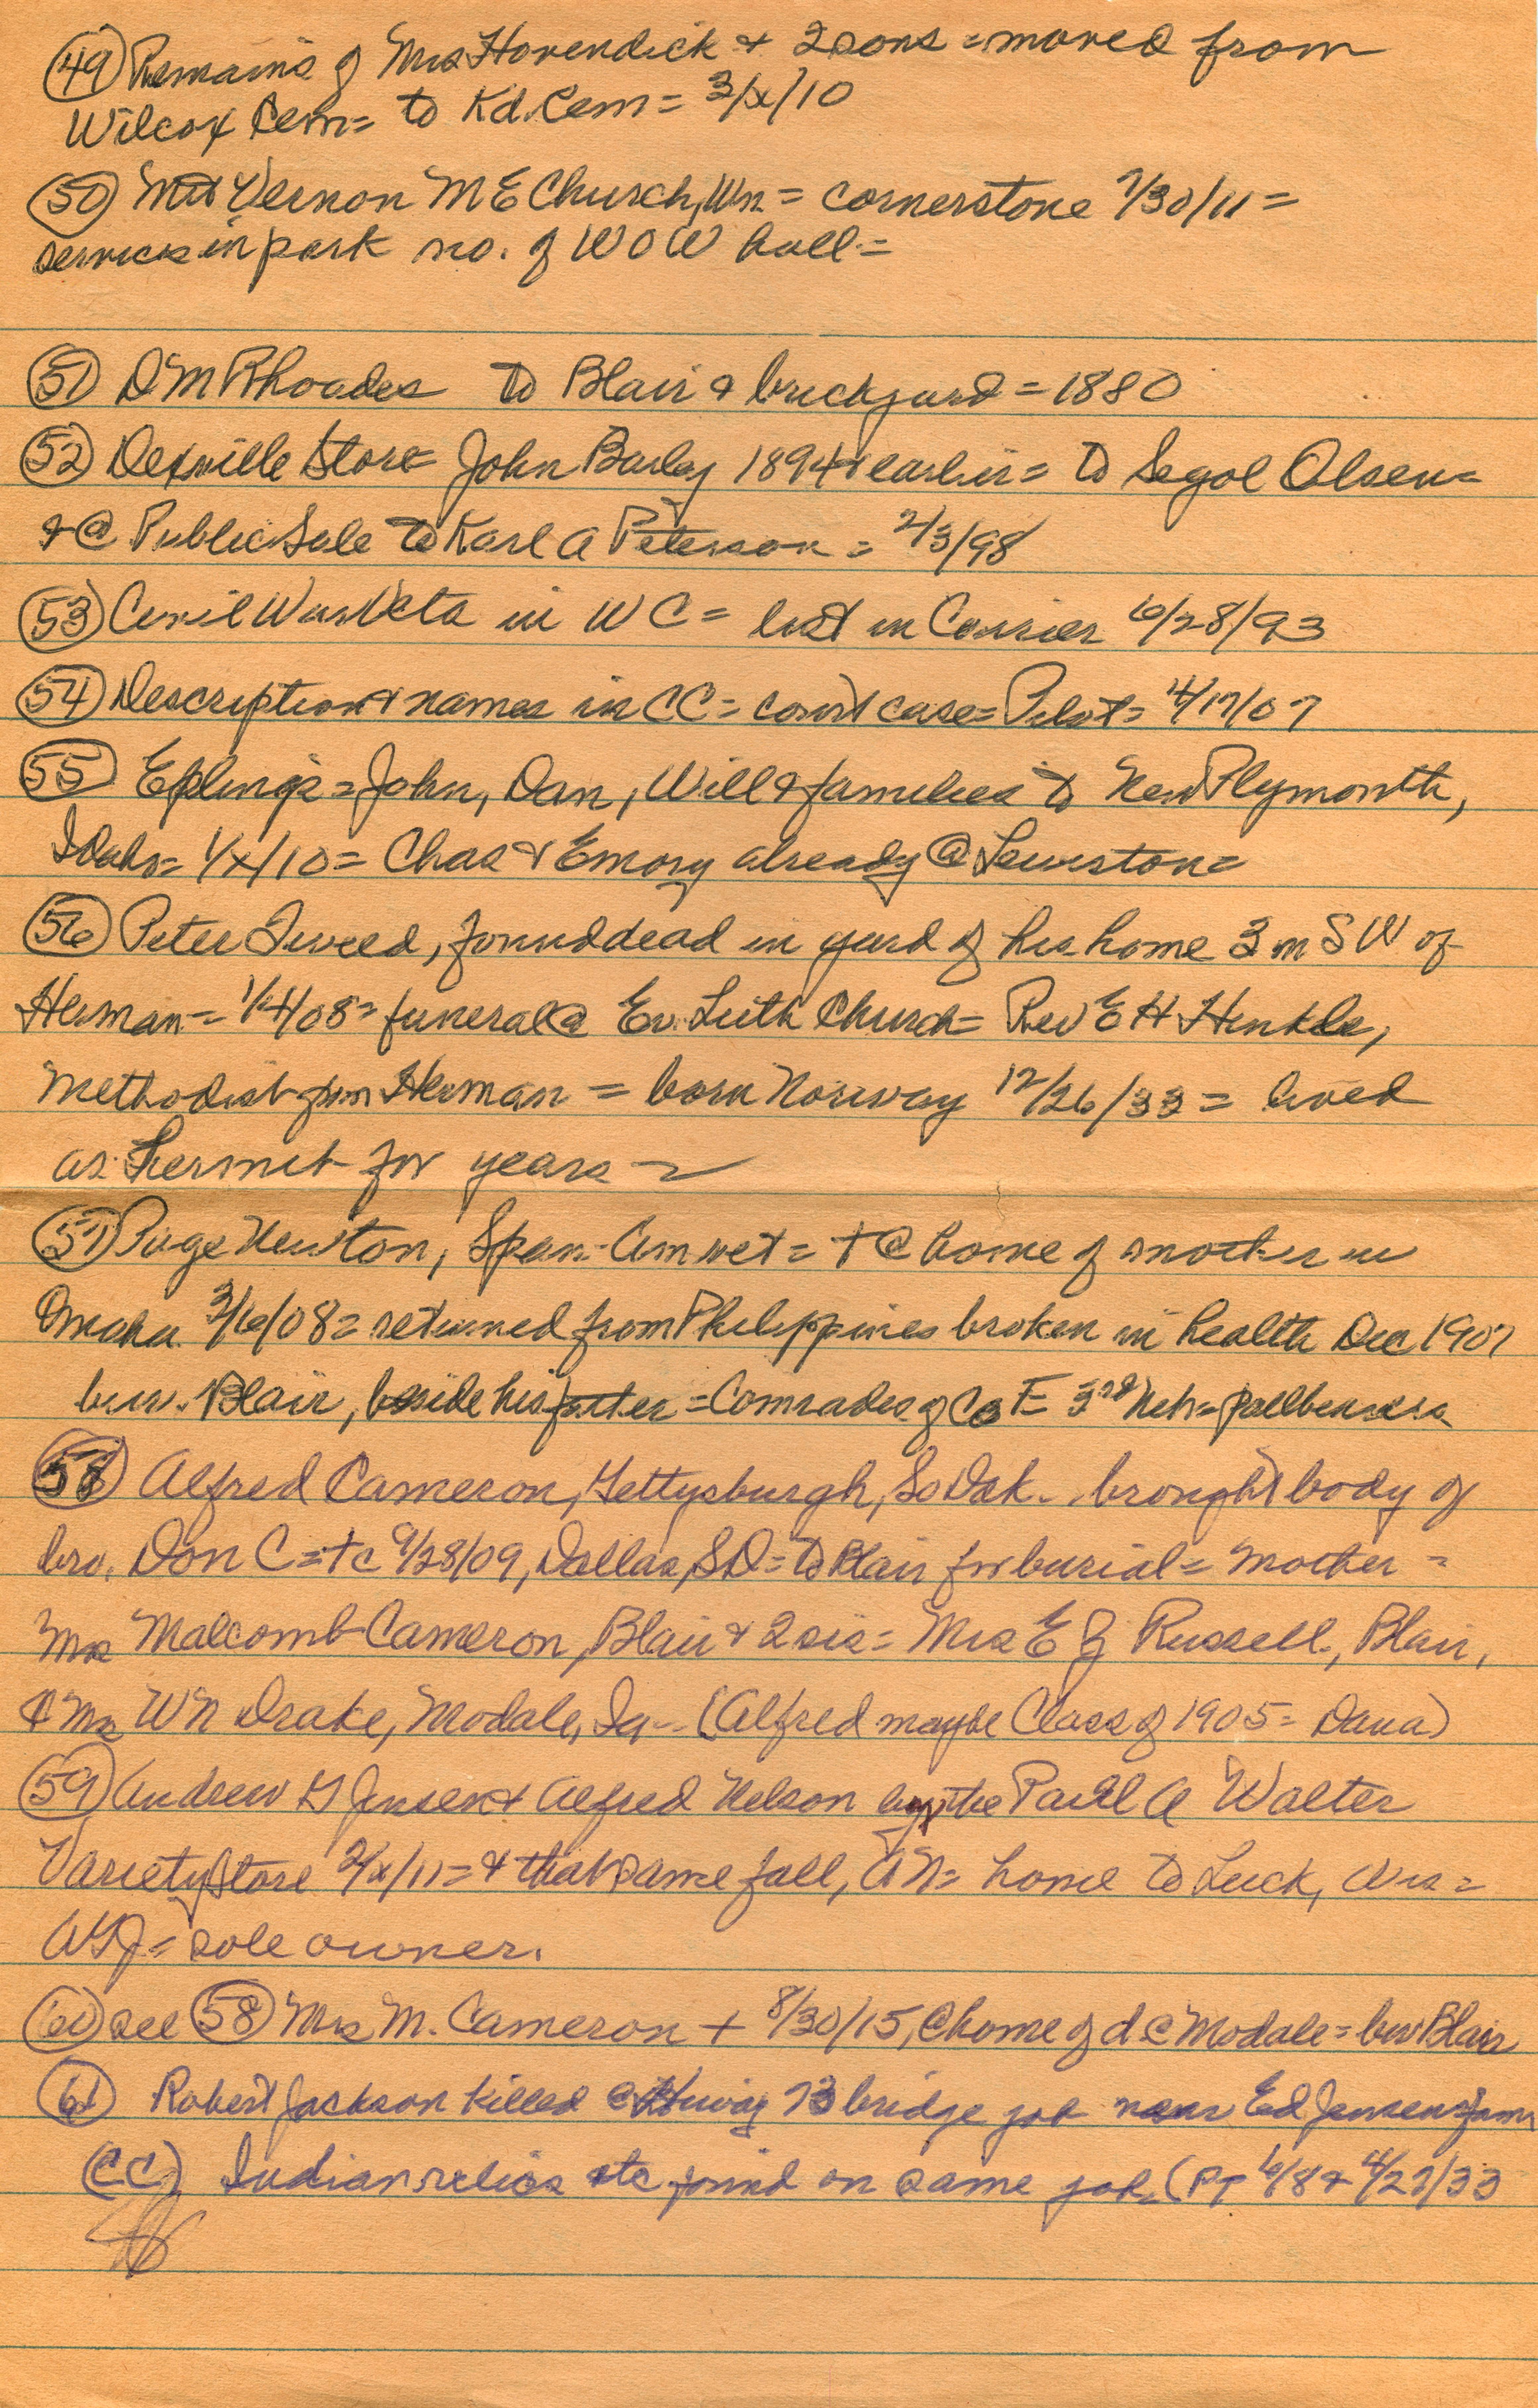 (49) Remains of Mrs Hovendick & 2 sons = moved from
Wilcox Cem = to Kd. Cem = 3/x/10
(50) Mt Vernon M E Church, Wn = cornerstone 7/30/11 =
services in park no. of W O W hall =
(51) D M Rhoades to Blair & brickyard = 1880
(52) Dexville Store = John Barley 1894 & earlier = to Segol Olsen =
& @ Public Sale to Karl A Peterson = 2/3/98
(53) Civil War Vets in W C = list in Courier 6/28/93
(54) Description & names in CC = court case = Pilot = 4/17/07
(55) Eplings = John, Dan, Will & families to New Plymouth,
Idaho = 1/x/10 = Chas & Emory already @ Lewiston =
(56) Peter Tweed, found dead in yard of his home 3 m S W of
Herman = 1/4/08 = funeral @ Ev. Luth Church = Rev E H Hinkle,
Methodist from Herman = born Norway 12/26/33 = lived
as hermit for years =
(57) Page Newton, Span-Am vet = + @ home of mother in
Omaha 3/6/08 = returned from Philippines broken in health Dec 1907
bur. Blair, beside his father = Comrades of Co E 3rd Neb = pallbearers
(58) Alfred Cameron, Gettysburgh, So Dak - brought body of
bro. Don C = + c 9/28/09, Dallas, SD = to Blair for burial = mother =
Mrs Malcomb Cameron, Blair & 2 sis = Mrs E J Russell, Blair,
& Mrs W N Drake, Modale, Ia - (Alfred maybe Class of 1905 = Dana)
(59) Andrew G Jensen & Alfred Nelson buy the Paul A Walter
Variety Store 2/x/11 = & that same fall, AN = home to Luck, Wis =
AGJ = sole owner.
(60) see (58) Mrs M. Cameron + 8/30/15, @ home of d @ Modale = bur Blair
(61) Robert Jackson killed @ Hiway 73 bridge job near Ed Jensen farm
(CC) Indian relics etc found on same job. (PT 6/8 & 4/27/33